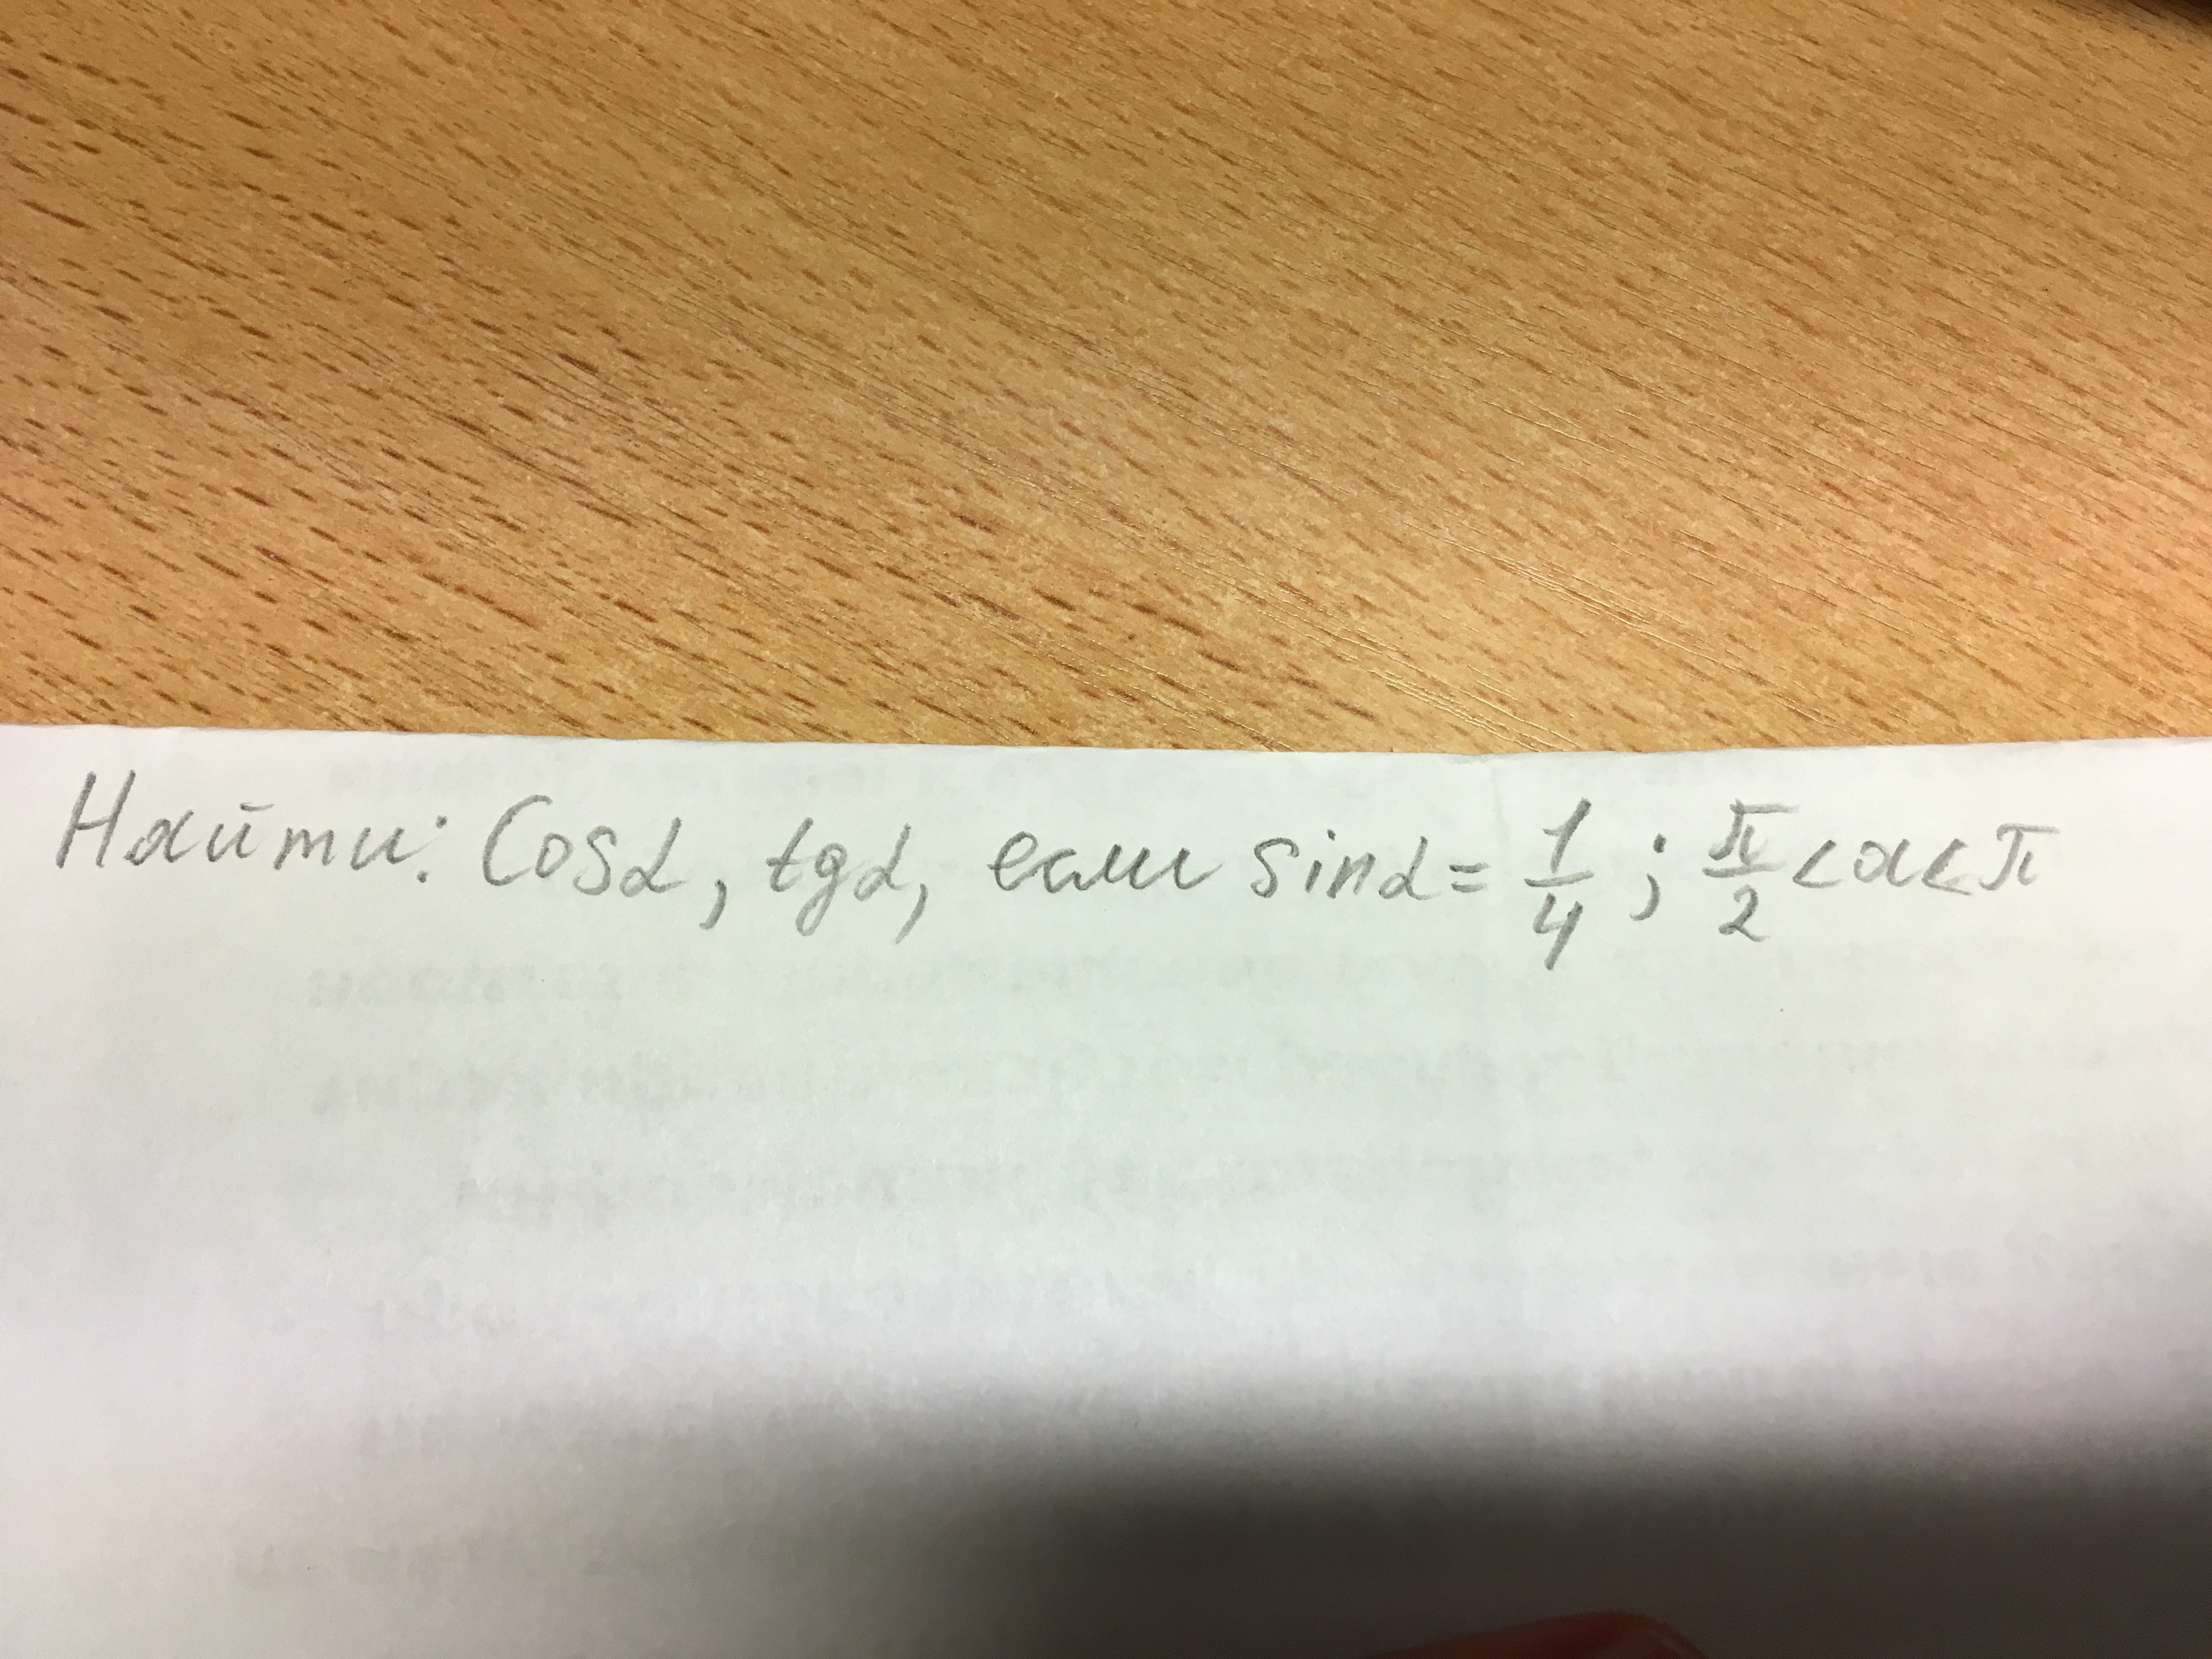 Найти: Cosα, tgα, если sinα = 1/4 ; π/2 < α < π